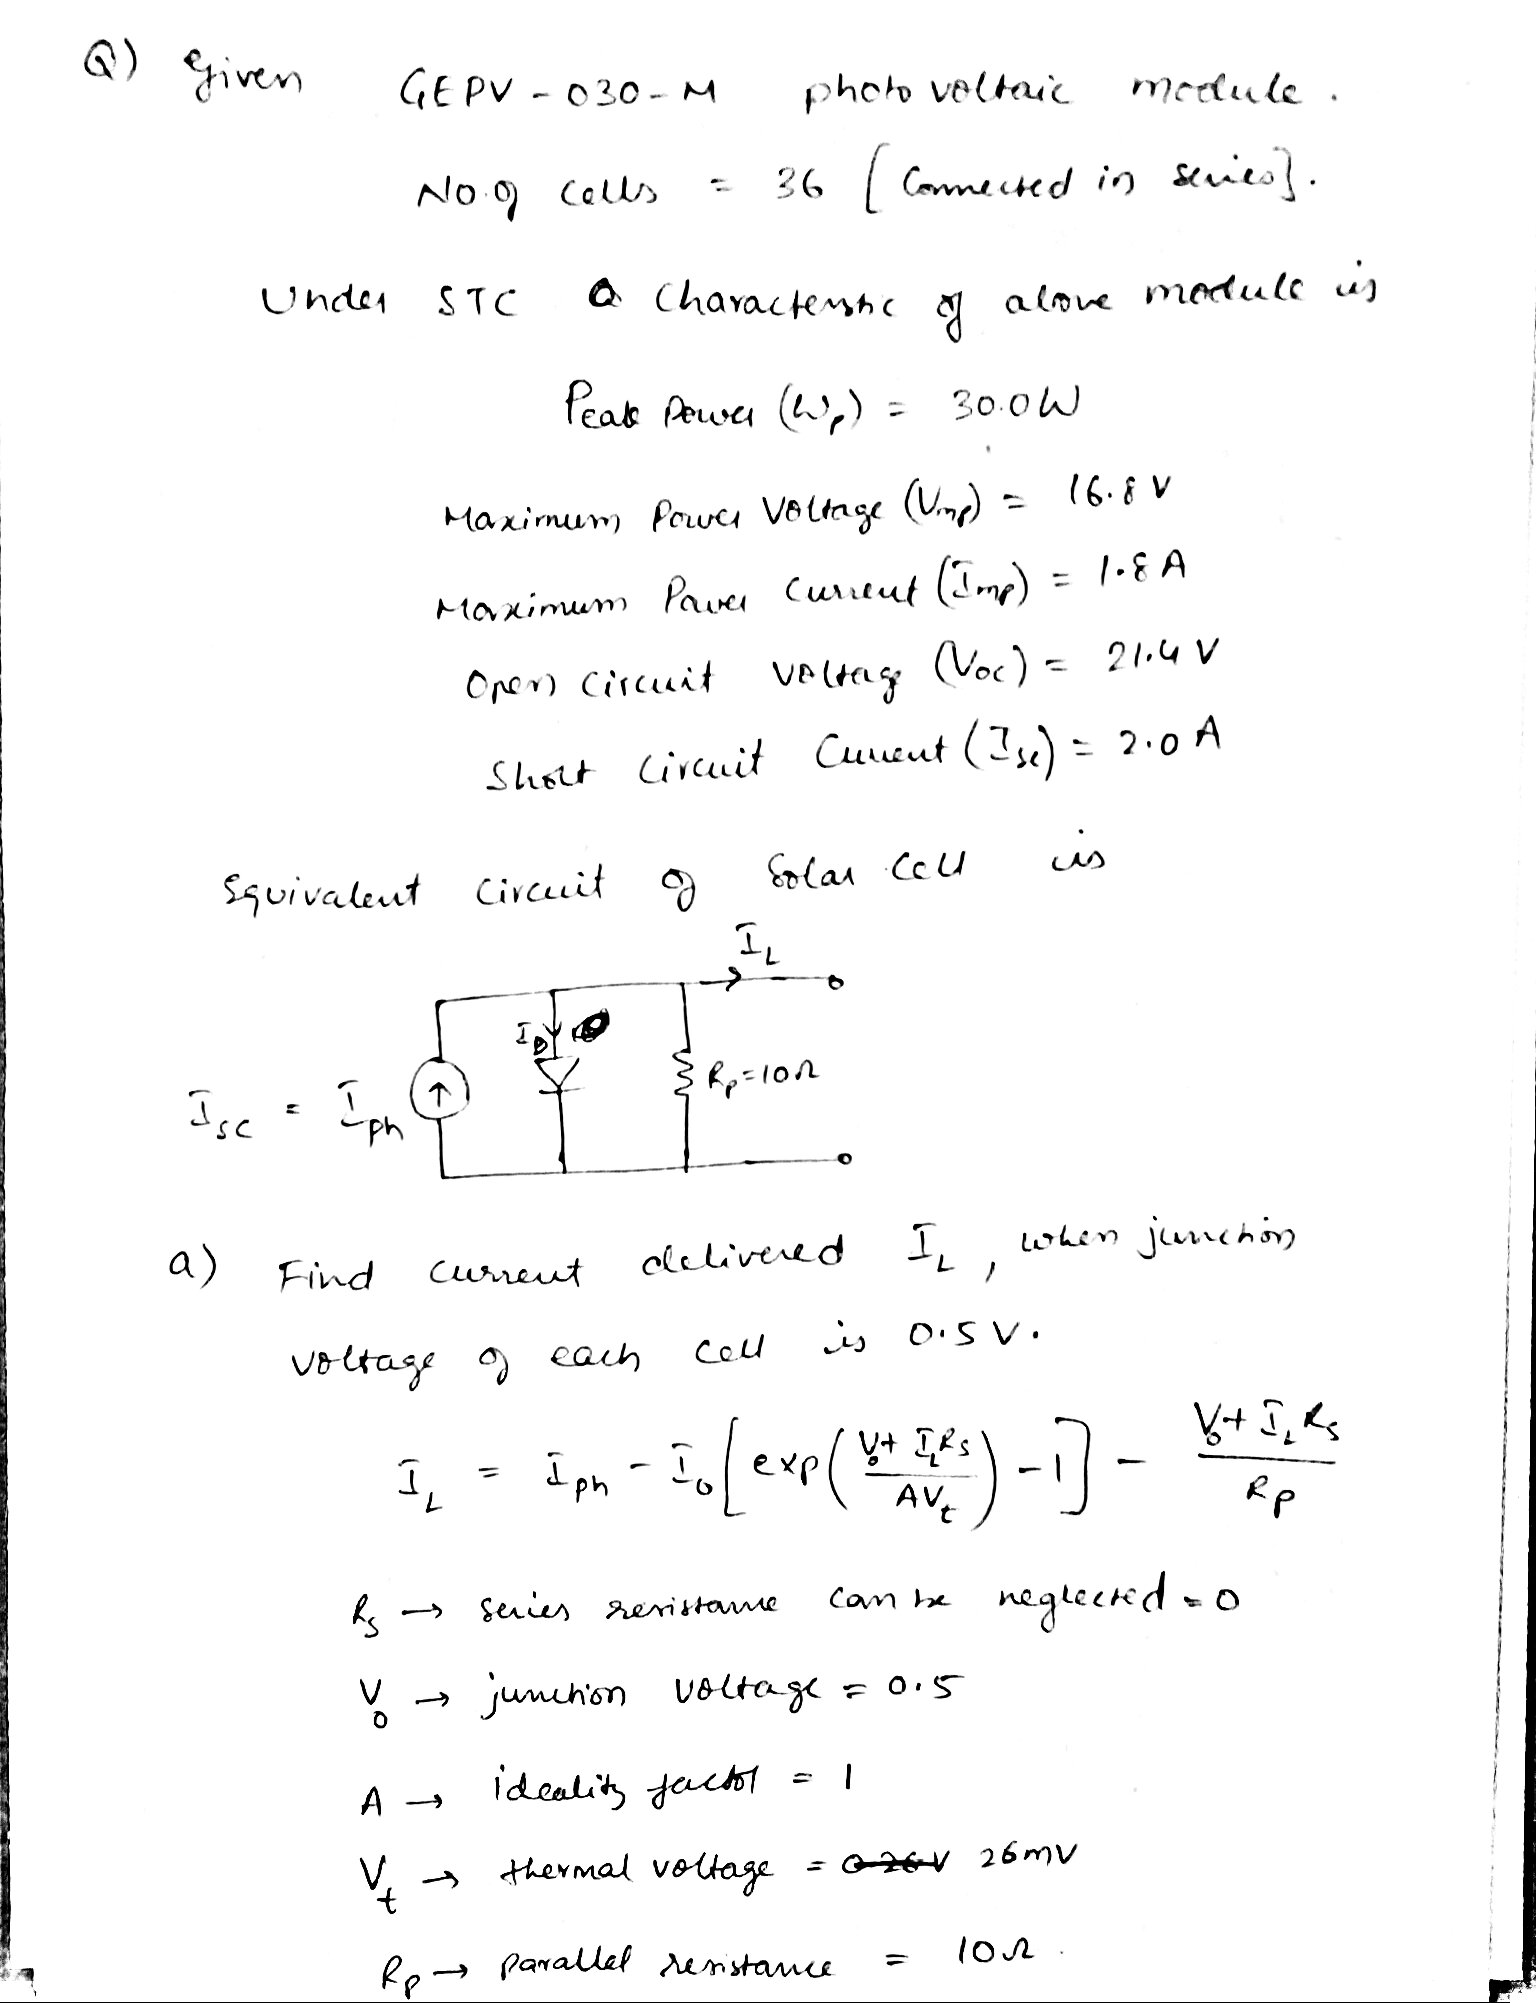 Q) Given GEPV-030-M photovoltaic module.
No. of cells = 36 [Connected in series].
Under STC a characteristic of above module is
Peak Power (Wp) = 30.0W
Maximum Power Voltage (Vmp) = 16.8 V
Maximum Power Current (Imp) = 1.8 A
Open circuit voltage (Voc) = 21.4 V
Short circuit Current (Isc) = 2.0 A
Equivalent circuit of Solar Cell is
I_L
I_D
Rp=10Ω
Isc = Iph
a) Find current delivered I_L, when junction
voltage of each cell is 0.5 V.
I_L = Iph - Io [exp((Vo + I_L Rs)/(A Vt)) - 1] - (Vo + I_L Rs)/Rp
Rs → series resistance can be neglected = 0
Vo → junction voltage = 0.5
A → ideality factor = 1
Vt → thermal voltage = 26mV
Rp → parallel resistance = 10Ω.